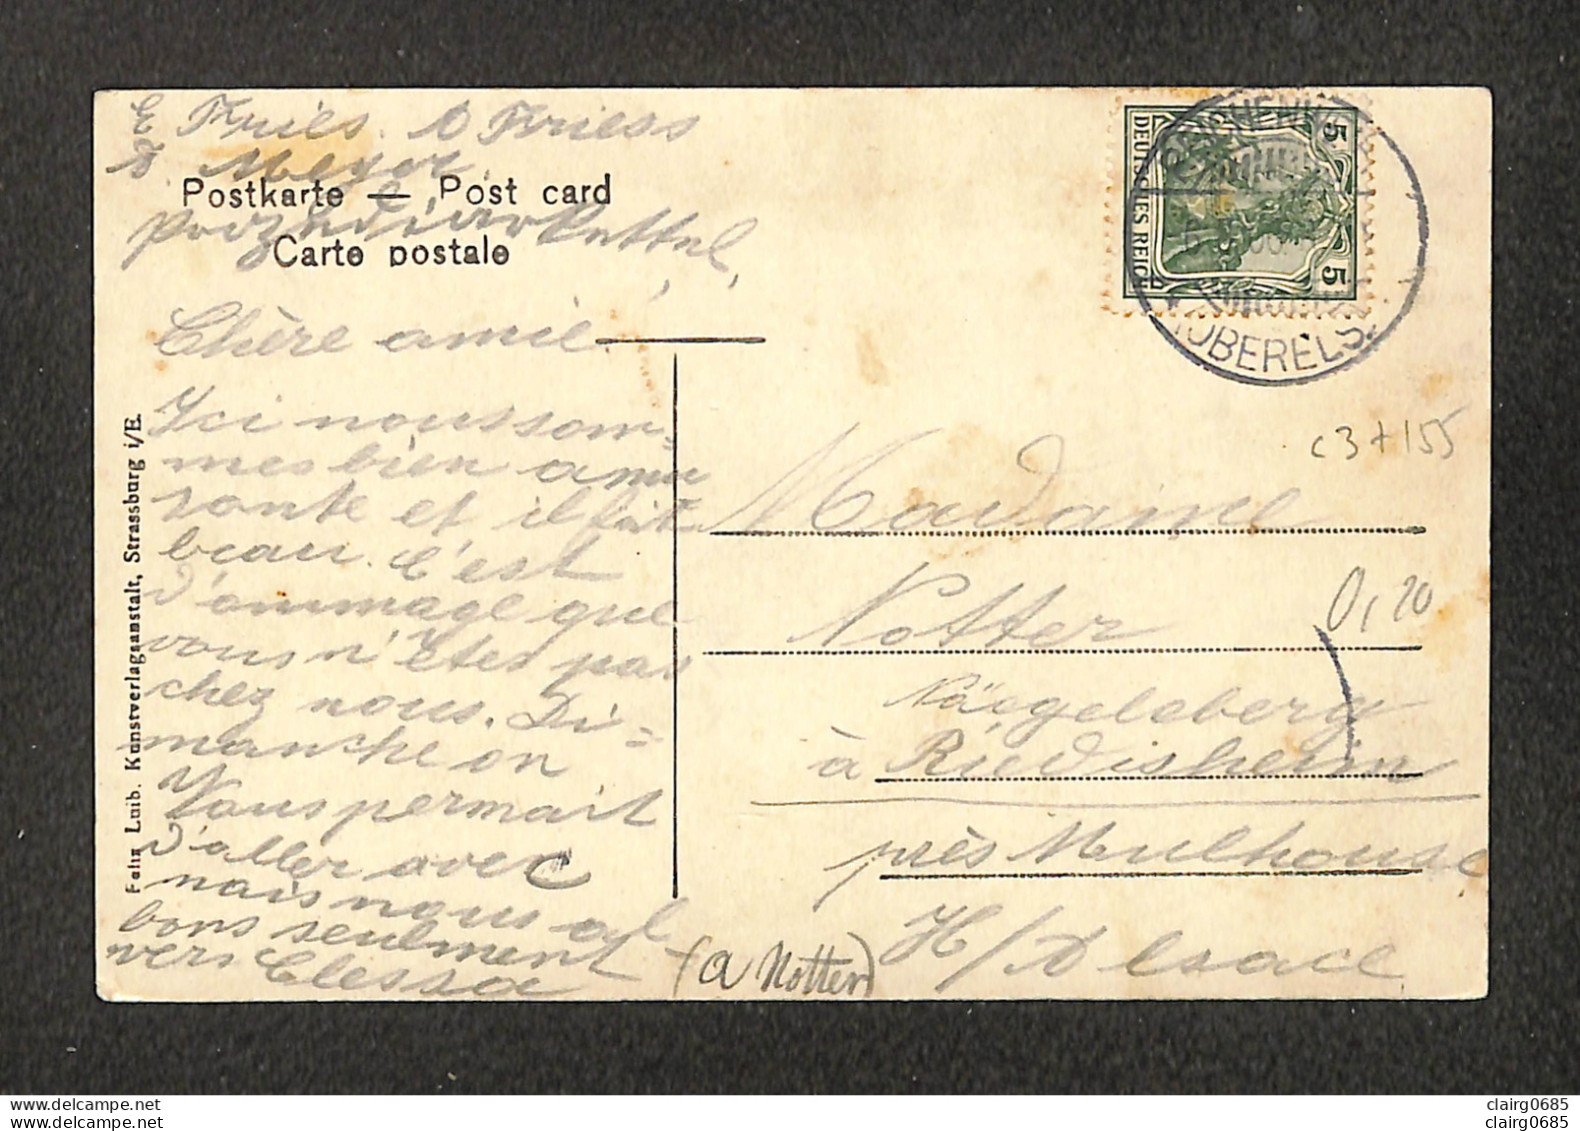 E Fries. A Friess
Meyer
Postkarte — Post card
Carte postale
Chère amie.
Ici nous som=
mes bien amu
sante et il fait
beau. C'est
d'ommage que
vous n'êtes pas
chez nous. Di=
manche on
Vous permait
d'aller avec
mais nous al
bons seulment
vers Clessa
Felix Luib. Kunstverlagsanstalt, Strassburg i/E.
DEUTSCHES REICH
5 5
(OBERELS.
c3+155
Madame
Notter
0,20
Näegeleberg
à Riedisheim
près Mulhouse
H/Alsace
(a Notter)
delcampe.net
clairg0685
delcampe.net
clairg0685